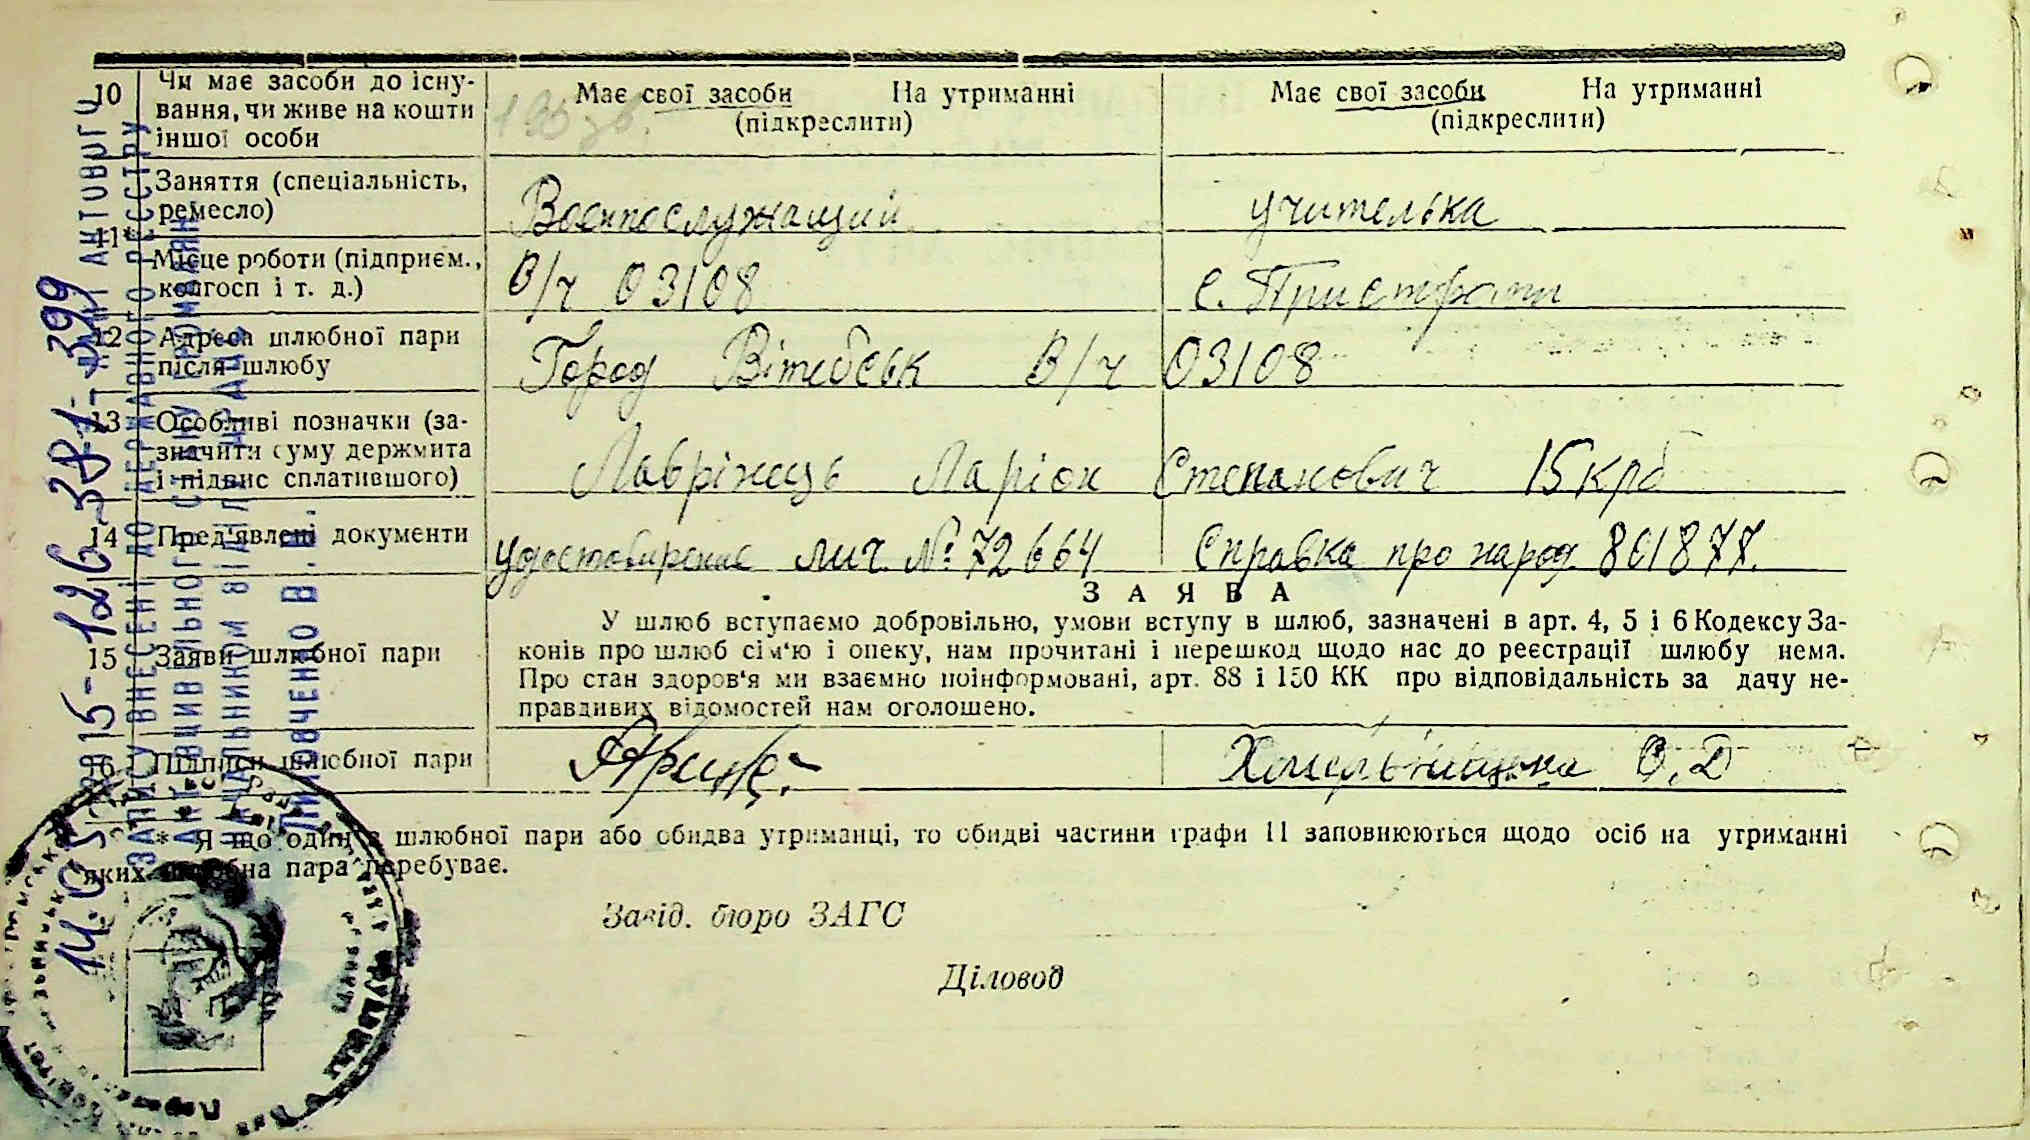 10 Чи має засоби до існу-
вання, чи живе на кошти
іншої особи
Має свої засоби На утриманні
(підкреслити)
Має свої засоби На утриманні
(підкреслити)
11* Заняття (спеціальність,
ремесло)
Военнослужащий
учителька
Місце роботи (підприєм.,
колгосп і т. д.)
В/ч 03108
с.
12 Адреса шлюбної пари
після шлюбу
Город Вітебськ В/ч 03108
13 Особливі позначки (за-
значити суму держмита
і підпис сплатившого)
Лаврінець Ларіон Степанович 15 крб
14 Пред'явлені документи
удостовирение лич. № 72664
Справка про народ 861877.
ЗАЯВА
15 Заяви шлюбної пари
У шлюб вступаємо добровільно, умови вступу в шлюб, зазначені в арт. 4, 5 і 6 Кодексу За-
конів про шлюб сім'ю і опеку, нам прочитані і перешкод щодо нас до реєстрації шлюбу нема.
Про стан здоров'я ми взаємно поінформовані, арт. 88 і 150 КК про відповідальність за дачу не-
правдивих відомостей нам оголошено.
16 Підписи шлюбної пари
О. Д
* Якщо один з шлюбної пари або обидва утриманці, то обидві частини графи 11 заповнюються щодо осіб на утриманні
яких шлюбна пара перебуває.
Завід. бюро ЗАГС
Діловод
ЗАПИСУ ВНЕСЕНІ ДО ДЕРЖАВНОГО РЕЄСТРУ
АКТІВ ЦИВІЛЬНОГО СТАНУ ГРОМАДЯН
НАЧАЛЬНИКОМ ВІДДІЛУ